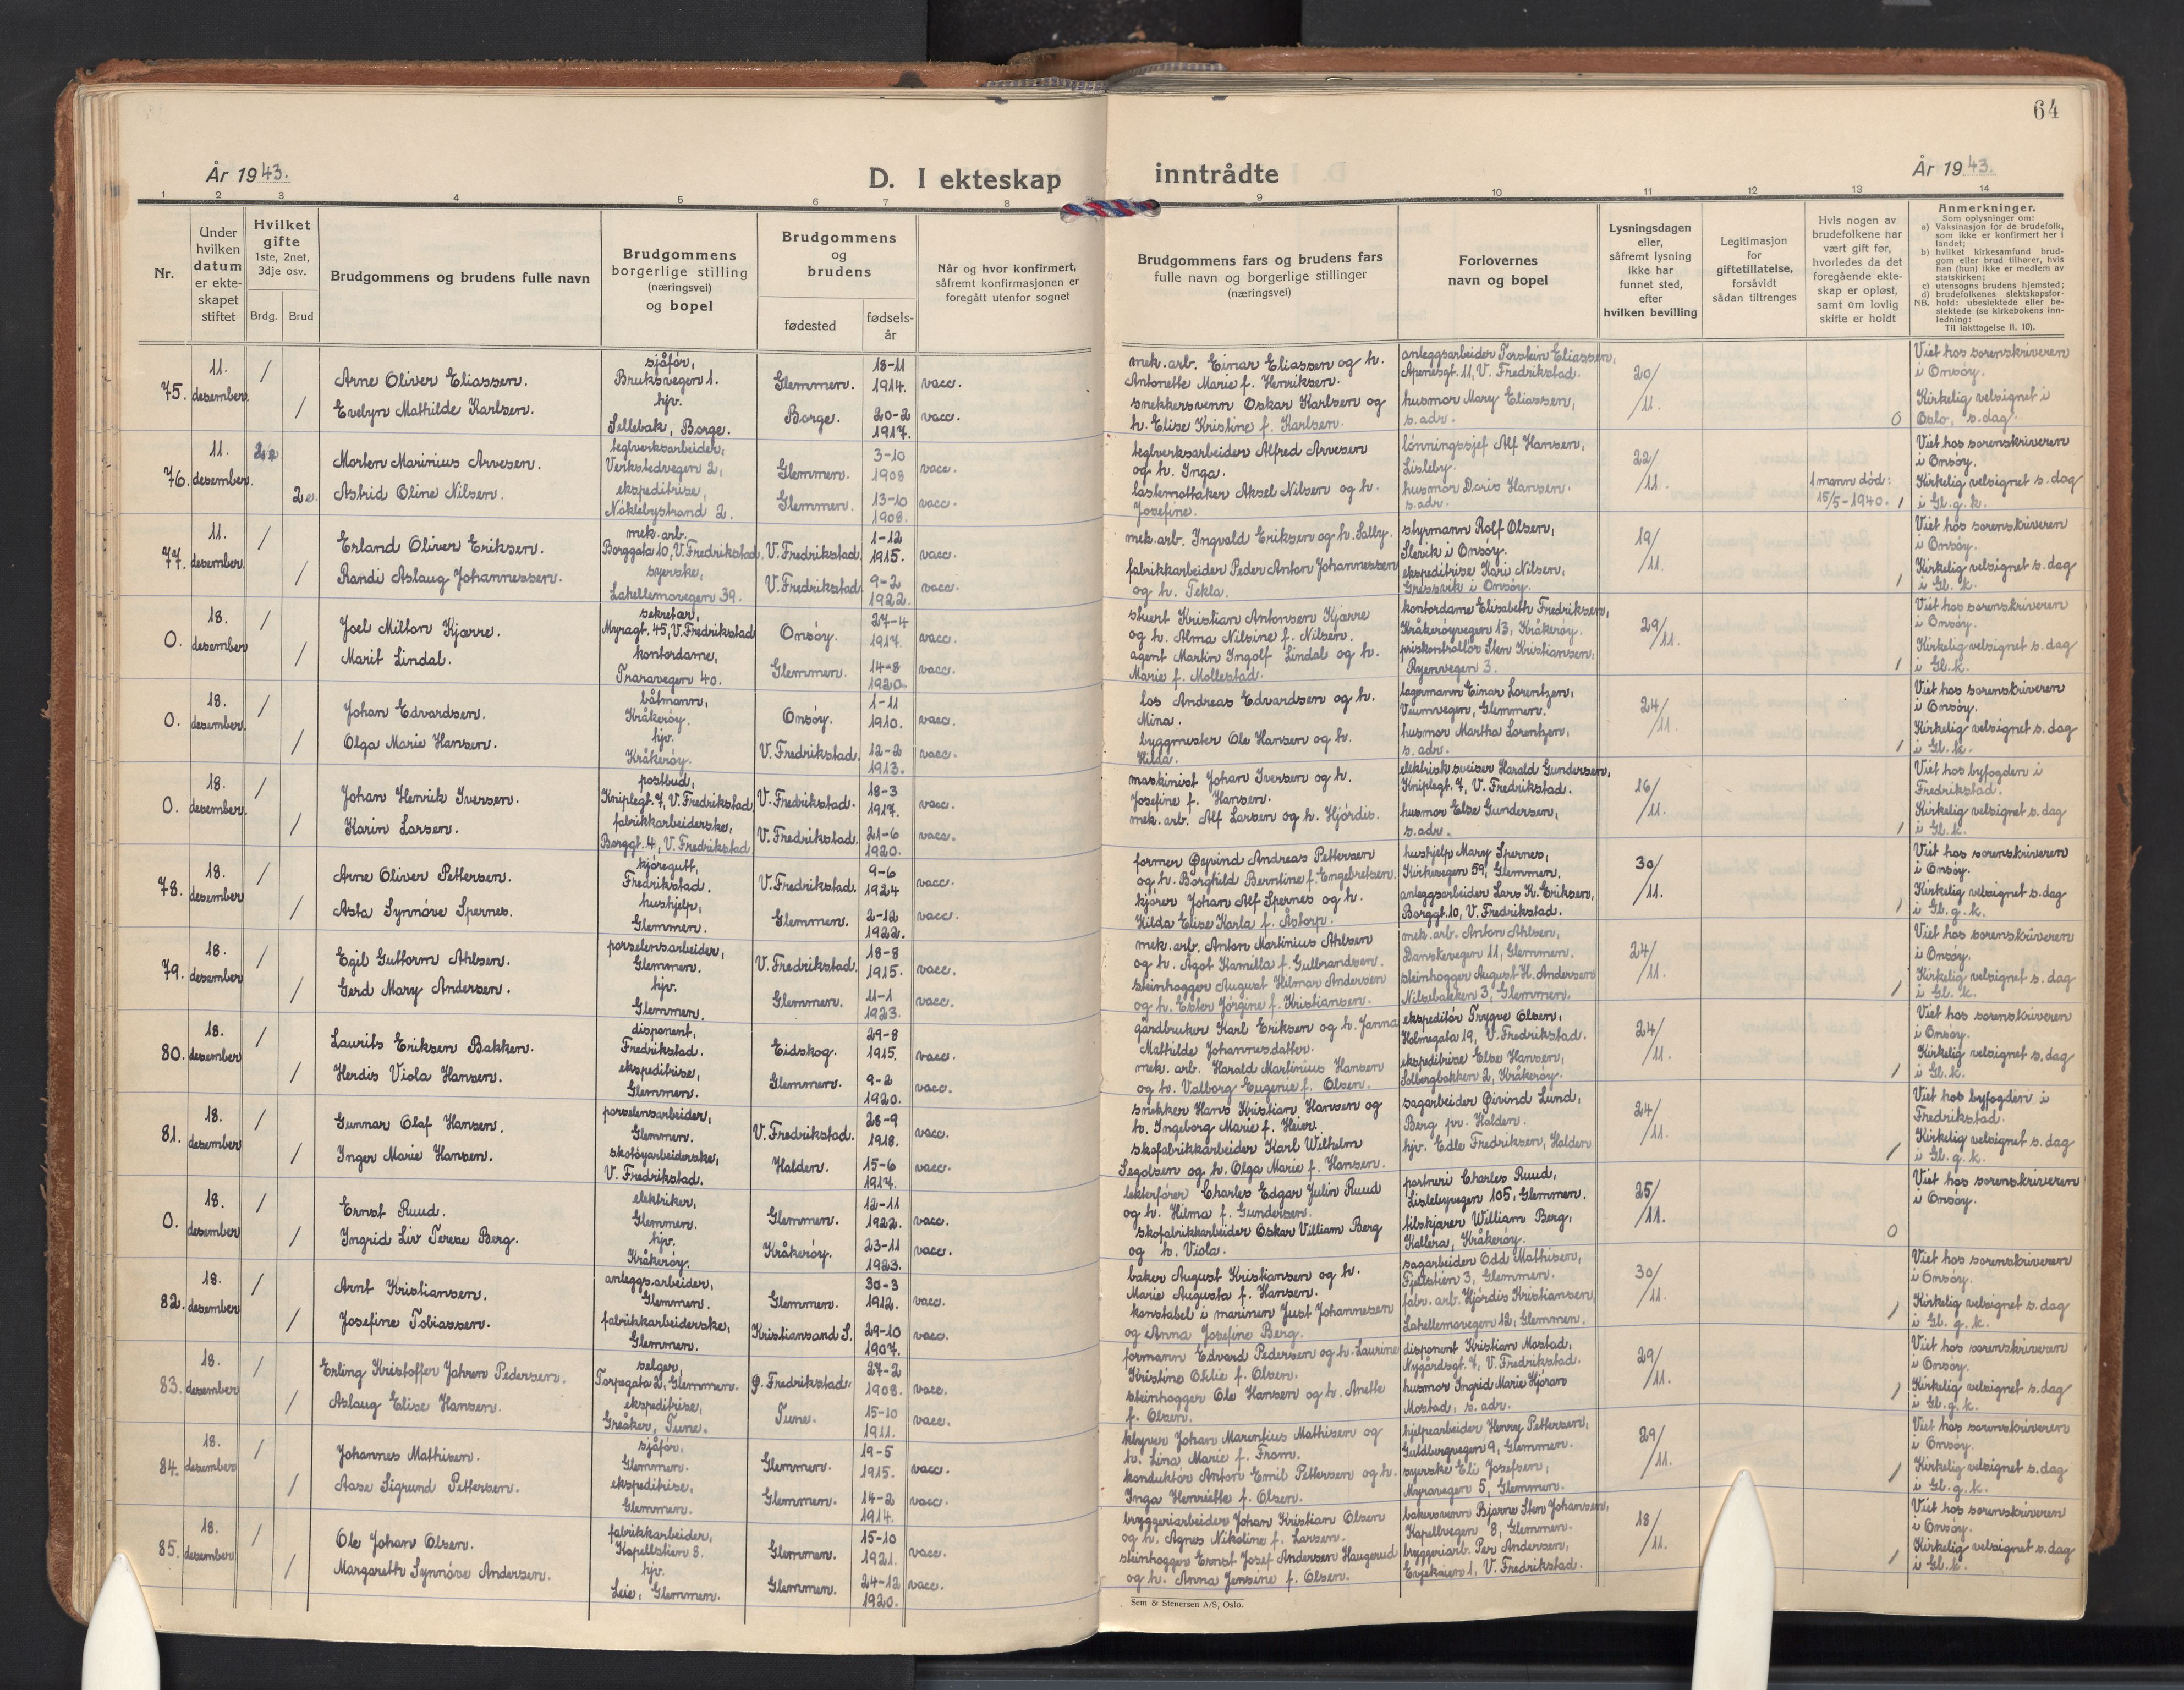 64
År 1943.
D. I ekteskap inntrådte
År 1943.
1 2 3 4 5 6 7 8 9 10 11 12 13 14
Nr.
Under hvilken datum er ekteskapet stiftet
Hvilket gifte 1ste, 2net, 3dje osv.
Brdg. Brud
Brudgommens og brudens fulle navn
Brudgommens borgerlige stilling (næringsvei) og bopel
Brudgommens og brudens
fødested
fødsels-år
Når og hvor konfirmert, såfremt konfirmasjonen er foregått utenfor sognet
Brudgommens fars og brudens fars fulle navn og borgerlige stillinger (næringsvei)
Forlovernes navn og bopel
Lysningsdagen eller, såfremt lysning ikke har funnet sted, efter hvilken bevilling
Legitimasjon for giftetillatelse, forsåvidt sådan tiltrenges
Hvis nogen av brudefolkene har vært gift før, hvorledes da det foregående ekteskap er opløst, samt om lovlig skifte er holdt
Anmerkninger.
Som oplysninger om:
a) Vaksinasjon for de brudefolk, som ikke er konfirmert her i landet;
b) hvilket kirkesamfund brudgom eller brud tilhører, hvis han (hun) ikke er medlem av statskirken;
c) utensogns brudens hjemsted;
d) brudefolkenes slektskapsforhold: ubeslektede eller beslektede (se kirkebokens innledning:
NB. Til iakttagelse II. 10).
75. 11. desember. / Arne Oliver Eliassen. sjåfør, Bruksvegen 1. Glemmen. 18-11 1914. vacc.
/ Evelyn Mathilde Karlsen. hjv. Sellebak, Borge. Borge. 20-2 1917. vacc.
mek. arb. Einar Eliassen og h. Antonette Marie f. Henriksen.
snekkersvenn Oskar Karlsen og h. Elise Kristine f. Karlsen.
anleggsarbeider Torstein Eliassen, Apenesgt. 11, V. Fredrikstad.
husmor Mary Eliassen, s. adr.
20/11. 0
Viet hos sorenskriveren i Onsøy.
Kirkelig velsignet i Oslo, s. dag.
76. 11. desember. Morten Marinius Arvesen. teglverksarbeider, Verkstedvegen 2, Glemmen. 3-10 1908 vacc.
Astrid Oline Nilsen. ekspeditrise, Nøklebystrand 2. Glemmen. 13-10 1908. vacc.
teglverksarbeider Alfred Arvesen og h. Inga.
lastemottaker Aksel Nilsen og h. Josefine.
lønningssjef Alf Hansen, Lisleby.
husmor Doris Hansen. s. adr.
22/11.
1 mann død: 15/5-1940. 1
Viet hos sorenskriveren i Onsøy.
Kirkelig velsignet s. dag i Gl. g. k.
77. 11. desember. / Erland Oliver Eriksen. mek. arb. Borggata 10, V. Fredrikstad. V. Fredrikstad. 1-12 1915. vacc.
/ Randi Aslaug Johannessen. syerske, Lahellemovegen 39. V. Fredrikstad. 9-2 1922. vacc.
mek. arb. Ingvald Eriksen og h. Sally.
fabrikkarbeider Peder Anton Johannessen og h. Tekla.
styrmann Rolf Olsen, Slevik i Onsøy.
ekspeditrise Kari Nilsen, Gressvik i Onsøy.
19/11. 1
Viet hos sorenskriveren i Onsøy.
Kirkelig velsignet s. dag i Gl. k.
0. 18. desember / Joel Milton Kjærre. sekretær, Myragt. 45, V. Fredrikstad Onsøy. 27-4 1917. vacc.
/ Marit Lindal. kontordame, Traravegen 40. Glemmen. 14-8 1920. vacc.
stuert Kristian Antonsen Kjærre og h. Alma Nilsine f. Nilsen.
agent Martin Ingolf Lindal og h. Marie f. Mollestad.
kontordame Elisabeth Fredriksen, Kråkerøyvegen 13, Kråkerøy.
priskontrollør Sten Kristiansen, Ryenvegen 3.
29/11. 1
Viet hos sorenskriveren i Onsøy.
Kirkelig velsignet s. dag i Gl. k.
0. 18. desember. / Johan Edvardsen. båtmann, Kråkerøy. Onsøy. 1-11 1910. vacc.
/ Olga Marie Hansen. hjv. Kråkerøy. V. Fredrikstad. 12-2 1913. vacc.
los Andreas Edvardsen og h. Mina.
byggmester Ole Hansen og h. Hilda.
lagermann Einar Lorentzen, Veumvegen, Glemmen.
husmor Martha Lorentzen, s. adr.
24/11. 1
Viet hos sorenskriveren i Onsøy.
Kirkelig velsignet s. dag i Gl. k.
0. 18. desember. / Johan Henrik Iversen. postbud, Kniplegt. 7, V. Fredrikstad V. Fredrikstad. 18-3 1917. vacc.
/ Karin Larsen. fabrikkarbeiderske, Borggt. 4, V. Fredrikstad V. Fredrikstad. 21-6 1920. vacc.
maskinist Johan Iversen og h. Josefine f. Hansen.
mek. arb. Alf Larsen og h. Hjördis.
elektrisk sveiser Harald Gundersen, Kniplegt. 7, V. Fredrikstad.
husmor Else Gundersen, s. adr.
16/11. 1
Viet hos byfogden i Fredrikstad.
Kirkelig velsignet s. dag i Gl. k.
78. 18. desember / Arne Oliver Pettersen. kjøregutt, Fredrikstad. V. Fredrikstad. 9-6 1924 vacc.
/ Asta Synnøve Spernes. hushjelp, Glemmen. Glemmen. 2-12 1922. vacc.
former Øyvind Andreas Pettersen og h. Borghild Berntine f. Engebretsen.
kjører Johan Alf Spernes og h. Hilda Elise Karla f. Åstorp.
hushjelp Mary Spernes, Kirkevegen 59, Glemmen.
anleggsarbeider Lars K. Eriksen, Borggt. 10, V. Fredrikstad.
30/11. 1
Viet hos sorenskriveren i Onsøy.
Kirkelig velsignet s. dag i Gl. g. k.
79. 18. desember / Egil Guttorm Ahlsen. porselensarbeider, Glemmen. V. Fredrikstad. 18-8 1915. vacc.
/ Gerd Mary Andersen. hjv. Glemmen. Glemmen. 11-1 1923. vacc.
mek. arb. Anton Martinius Ahlsen og h. Agot Kamilla f. Gulbrandsen.
steinhogger August Hilmar Andersen og h. Ester Jørgine f. Kristiansen.
mek. arb. Anton Ahlsen, Danskevegen 11, Glemmen.
steinhogger August H. Andersen Nilsebakken 3, Glemmen.
24/11. 1
Viet hos sorenskriveren i Onsøy.
Kirkelig velsignet s. dag i Gl. k.
80. 18. desember / Laurits Eriksen Bakken. disponent, Fredrikstad. Eidskog. 29-8 1915. vacc.
/ Herdis Viola Hansen. ekspeditrise, Glemmen. Glemmen. 9-2 1920. vacc.
gårdbruker Karl Eriksen og h. Janna Mathilde Johannesdatter.
mek. arb. Harald Martinius Hansen og h. Valborg Eugenie f. Olsen.
ekspeditør Trygve Olsen, Holmegata 19, V. Fredrikstad.
ekspeditrise Else Hansen, Solbergbakken 2, Kråkerøy.
24/11. 1
Viet hos sorenskriveren i Onsøy.
Kirkelig velsignet s. dag i Gl. k.
81. 18. desember / Gunnar Olaf Hansen. porselensarbeider, Glemmen. V. Fredrikstad. 28-9 1918. vacc.
/ Inger Marie Hansen. skotøyarbeiderske, V. Fredrikstad. Halden. 15-6 1917. vacc.
snekker Hans Kristian Hansen og h. Ingeborg Marie f. Heier.
skofabrikkarbeider Karl Wilhelm Segolsen og h. Olga Marie f. Hansen.
sagarbeider Øivind Lund, Berg pr. Halden.
hjv. Edle Fredriksen, Halden
24/11. 1
Viet hos byfogden i Fredrikstad.
Kirkelig velsignet s. dag i Gl. g. k.
0. 18. desember / Ernst Ruud. elektriker, Glemmen. Glemmen. 12-11 1922. vacc.
/ Ingrid Liv Terese Berg. hjv. Kråkerøy. Kråkerøy. 23-11 1923. vacc.
lekterfører Charles Edgar Julin Ruud og h. Hilma f. Gundersen.
skofabrikkarbeider Oskar William Berg og h. Viola.
Charles Ruud, Lislebyvegen 105, Glemmen.
tilskjærer William Berg, Kallera, Kråkerøy.
25/11. 0
Viet hos sorenskriveren i Onsøy.
82. 18. desember / Arnt Kristiansen. anleggsarbeider, Glemmen. Glemmen. 30-3 1912. vacc.
/ Josefine Tobiassen. fabrikkarbeiderske, Glemmen. Kristiansand S. 29-10 1907. vacc.
baker August Kristiansen og h. Marie Augusta f. Hansen.
konstabel i marinen Just Johannesen og Anna Josefine Berg.
sagarbeider Odd Mathisen, Fjellstien 3, Glemmen.
fabr. arb. Hjördis Kristiansen, Lahellemovegen 12, Glemmen.
30/11. 1
Viet hos sorenskriveren i Onsøy.
Kirkelig velsignet s. dag i Gl. g. k.
83. 18. desember / Erling Kristoffer Jahren Pedersen. selger, Torpegata 2, Glemmen. G. Fredrikstad. 27-2 1908. vacc.
/ Aslaug Elise Hansen. ekspeditrise, Greåker, Tune. Tune. 15-10 1911. vacc.
formann Edvard Pedersen og h. Laurine Kristine Otilie f. Olsen.
steinhogger Ole Hansen og h. Anette f. Olsen.
disponent Kristian Mostad, Nygårdsgt. 7, V. Fredrikstad.
husmor Ingrid Marie Hjoran Mostad, s. adr.
29/11. 1
Viet hos sorenskriveren i Onsøy.
Kirkelig velsignet s. dag i Gl. g. k.
84. 18. desember / Johannes Mathisen. sjåfør, Glemmen. Glemmen. 19-5 1915. vacc.
/ Aase Sigrund Pettersen. ekspeditrise, Glemmen. Glemmen. 14-2 1914. vacc.
kløyver Johan Marentius Mathisen og h. Lina Marie f. From.
konduktør Anton Emil Pettersen og h. Inga Henriette f. Olsen.
hjelpearbeider Henry Pettersen, Guldbergvegen 9, Glemmen.
syerske Eli Josefsen, Myravegen 5, Glemmen.
29/11. 1
Viet hos sorenskriveren i Onsøy.
Kirkelig velsignet s. dag i Gl. g. k.
85. 18. desember / Ole Johan Olsen. fabrikkarbeider, Kapellstien 8. Glemmen. 15-10 1921. vacc.
/ Margareth Synnøve Andersen. hjv. Leie, Glemmen. Glemmen. 24-12 1920. vacc.
bryggeriarbeider Johan Kristian Olsen og h. Agnes Nikoline f. Larsen.
steinhogger Ernst Josef Andersen Haugerud og h. Anna Jensine f. Olsen.
bakersvenn Bjarne Sten Johansen, Kapellvegen 8, Glemmen.
bryggeriarb. Per Andersen, Evjekaien 1, V. Fredrikstad.
18/11. 1
Viet hos sorenskriveren i Onsøy.
Kirkelig velsignet s. dag i Gl. k.
Sem & Stenersen A/S, Oslo.